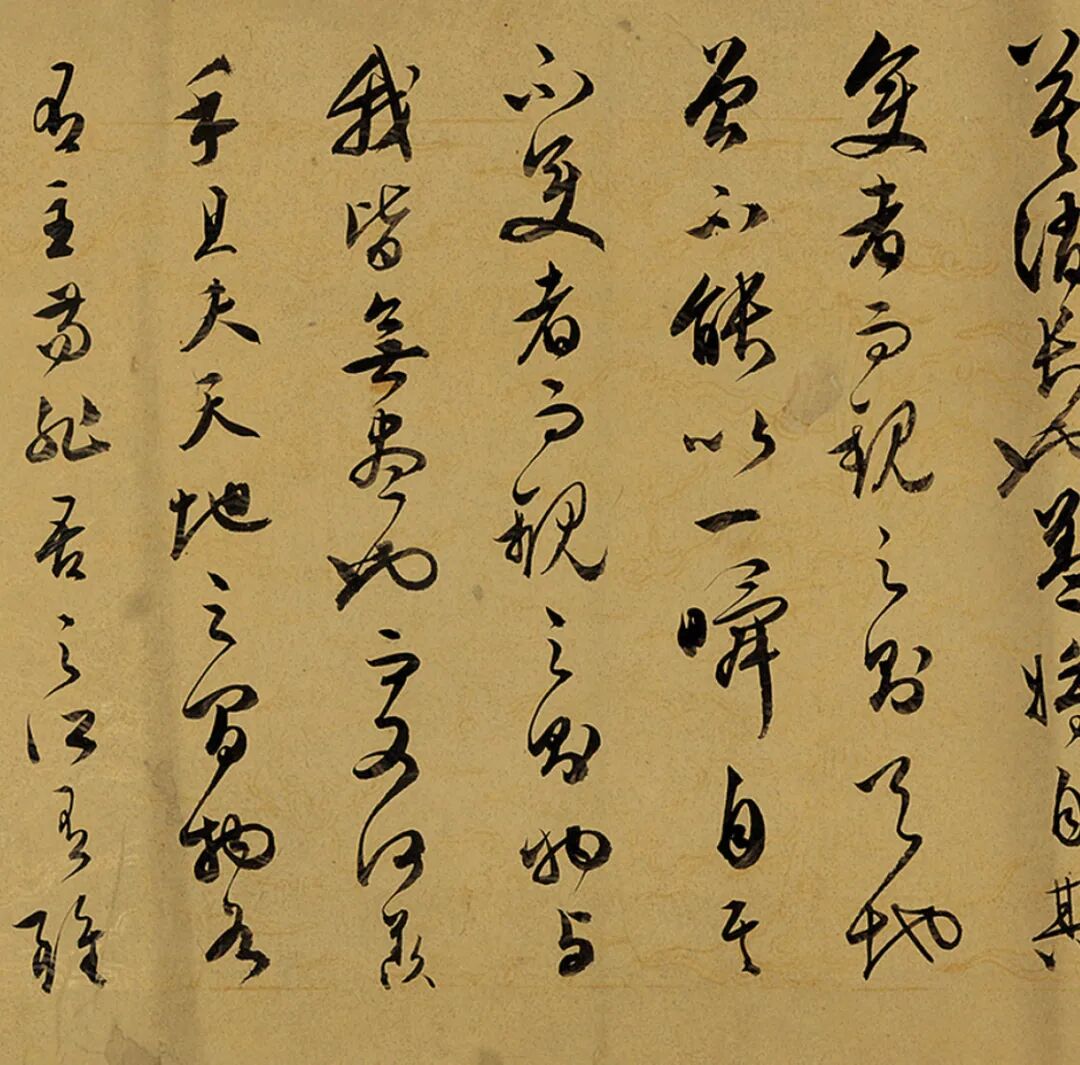 莫消長也盖將自其
變者而觀之則天地
曾不能以一瞬自其
不變者而觀之則物与
我皆無盡也而又何羨
乎且夫天地之間物各
有主苟非吾之所有雖